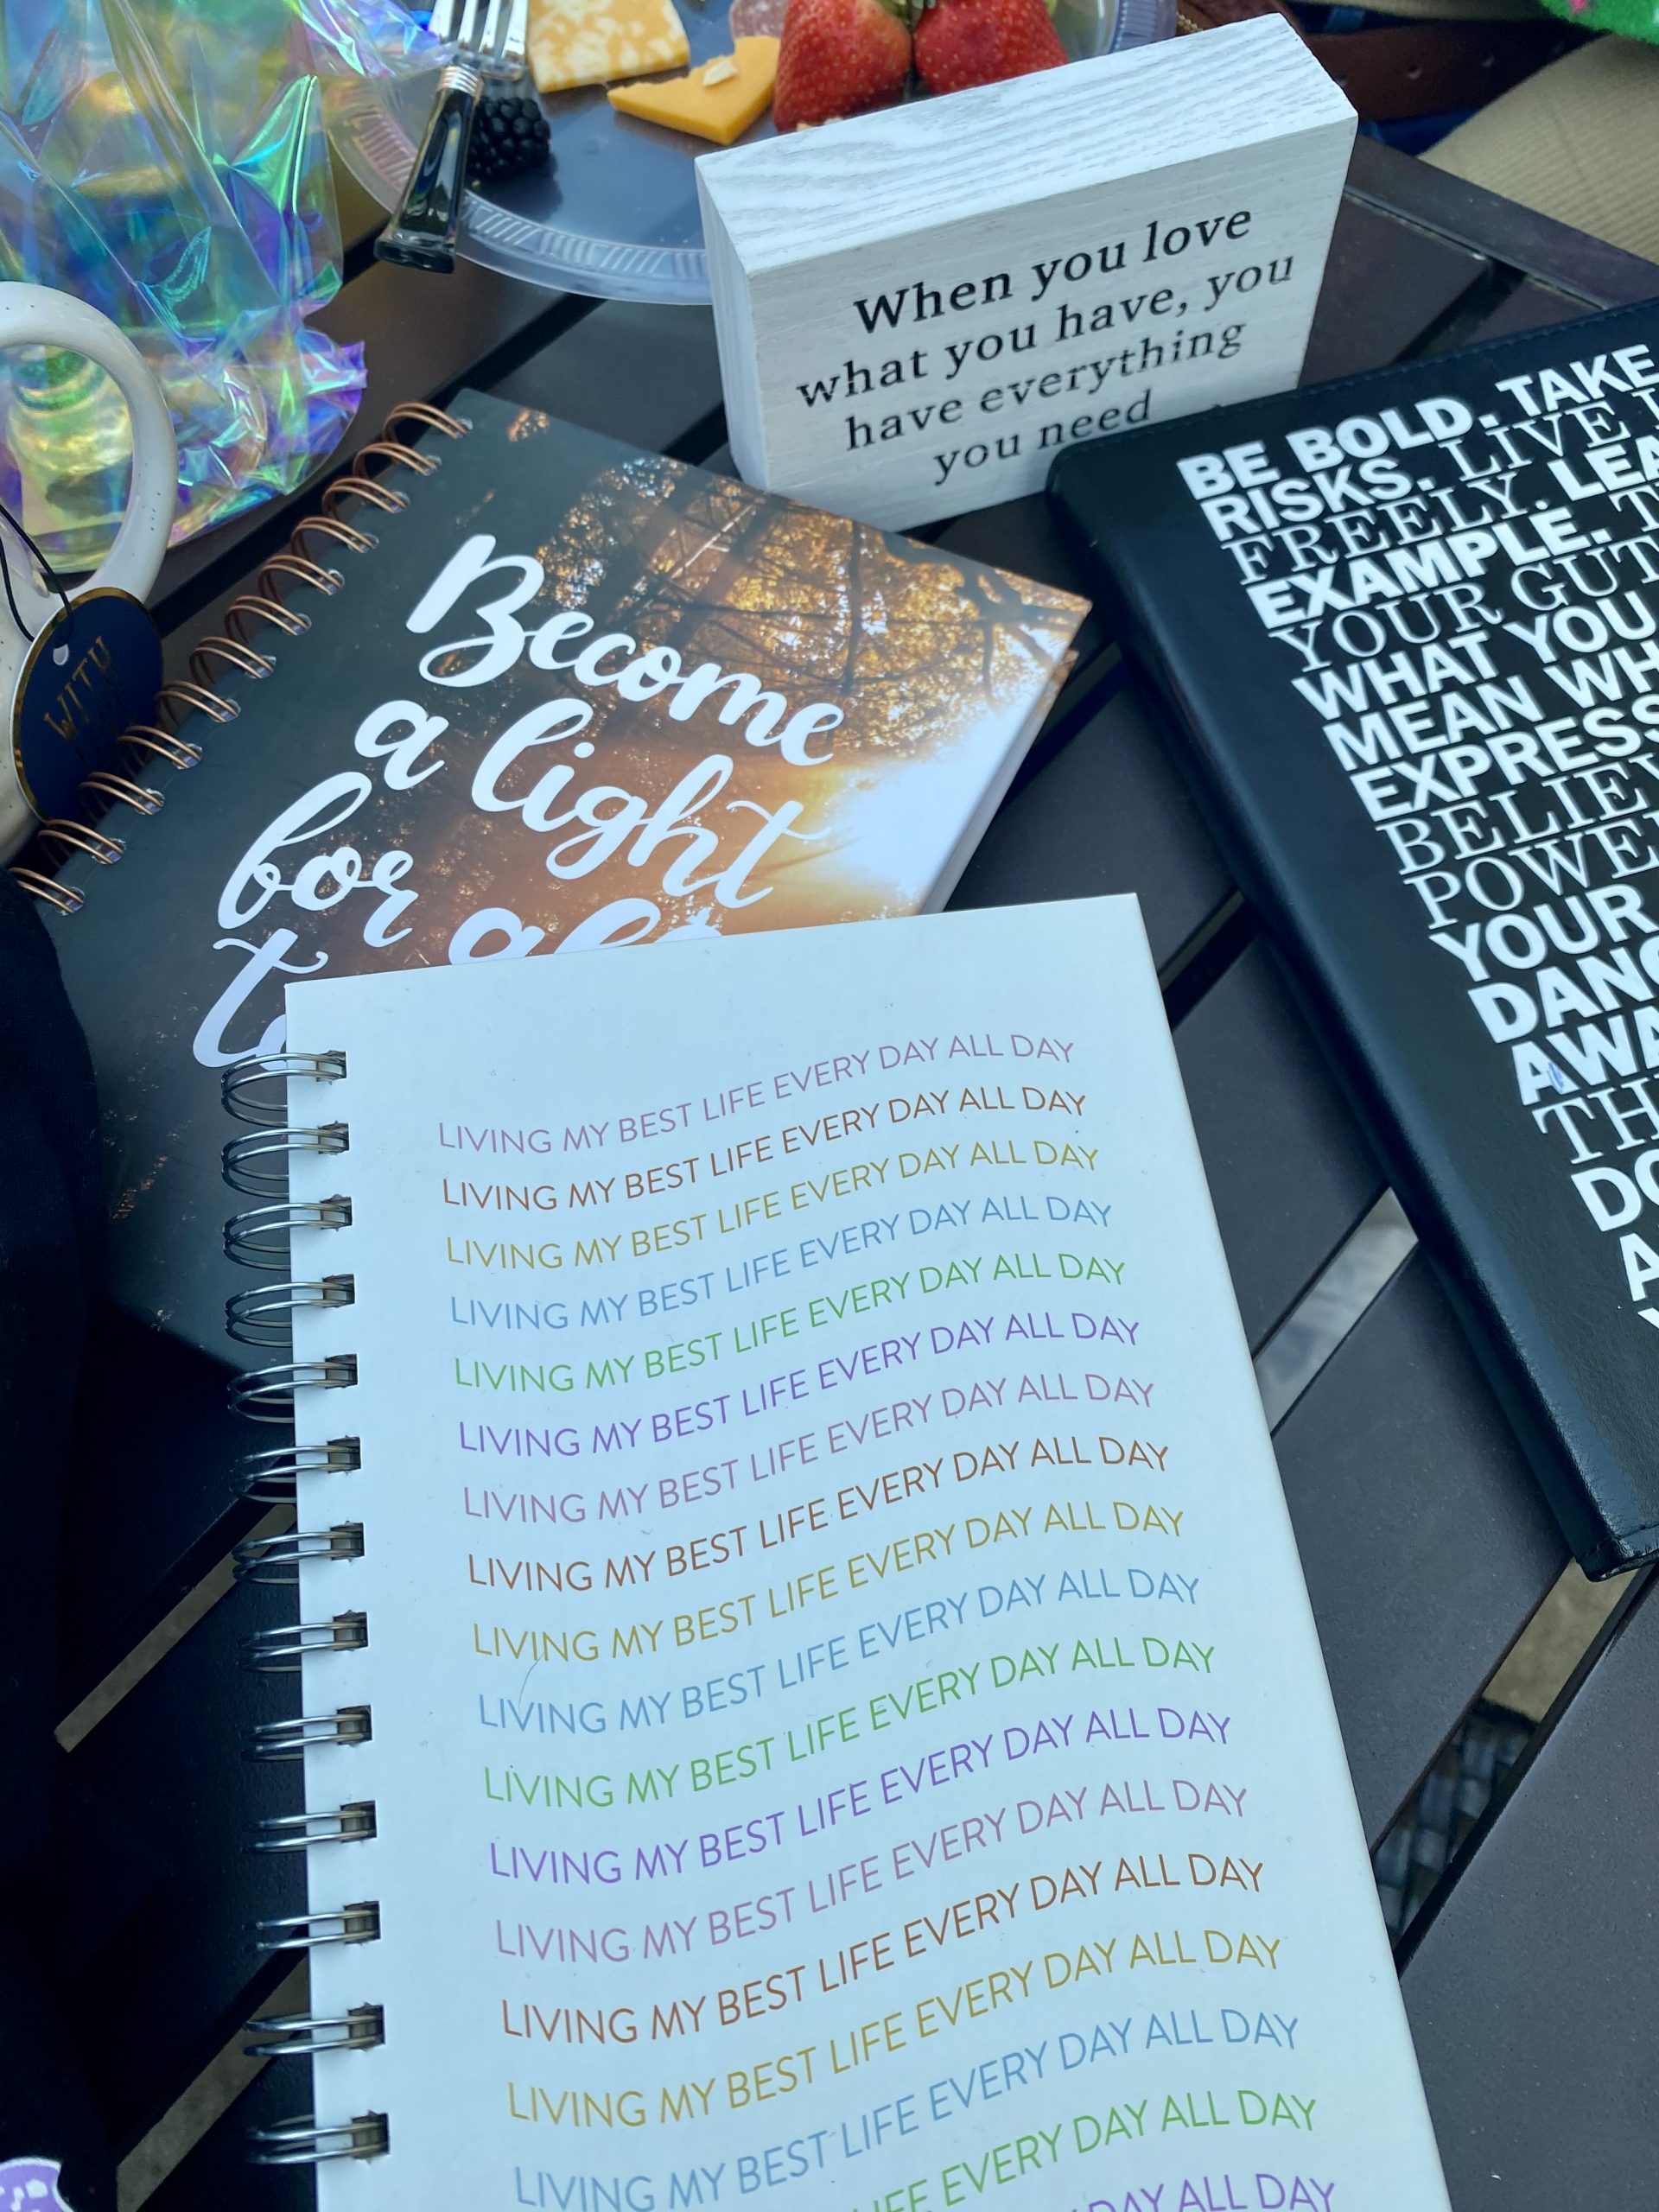 When you love
what you have, you
have everything
you need
BE BOLD. TAKE
RISKS. LIVE
FREELY. LEA
EXAMPLE.
YOUR GUT
WHAT YOU
MEAN WH
EXPRESS
BELIEV
POWE
YOUR
DANC
AWA
TH
DO
A
Become
a light
for
WITH
LIVING MY BEST LIFE EVERY DAY ALL DAY
LIVING MY BEST LIFE EVERY DAY ALL DAY
LIVING MY BEST LIFE EVERY DAY ALL DAY
LIVING MY BEST LIFE EVERY DAY ALL DAY
LIVING MY BEST LIFE EVERY DAY ALL DAY
LIVING MY BEST LIFE EVERY DAY ALL DAY
LIVING MY BEST LIFE EVERY DAY ALL DAY
LIVING MY BEST LIFE EVERY DAY ALL DAY
LIVING MY BEST LIFE EVERY DAY ALL DAY
LIVING MY BEST LIFE EVERY DAY ALL DAY
LIVING MY BEST LIFE EVERY DAY ALL DAY
LIVING MY BEST LIFE EVERY DAY ALL DAY
LIVING MY BEST LIFE EVERY DAY ALL DAY
LIVING MY BEST LIFE EVERY DAY ALL DAY
LIVING MY BEST LIFE EVERY DAY ALL DAY
LIVING MY BEST LIFE EVERY DAY ALL DAY
LIFE EVERY DAY ALL DAY
DAY ALL DAY